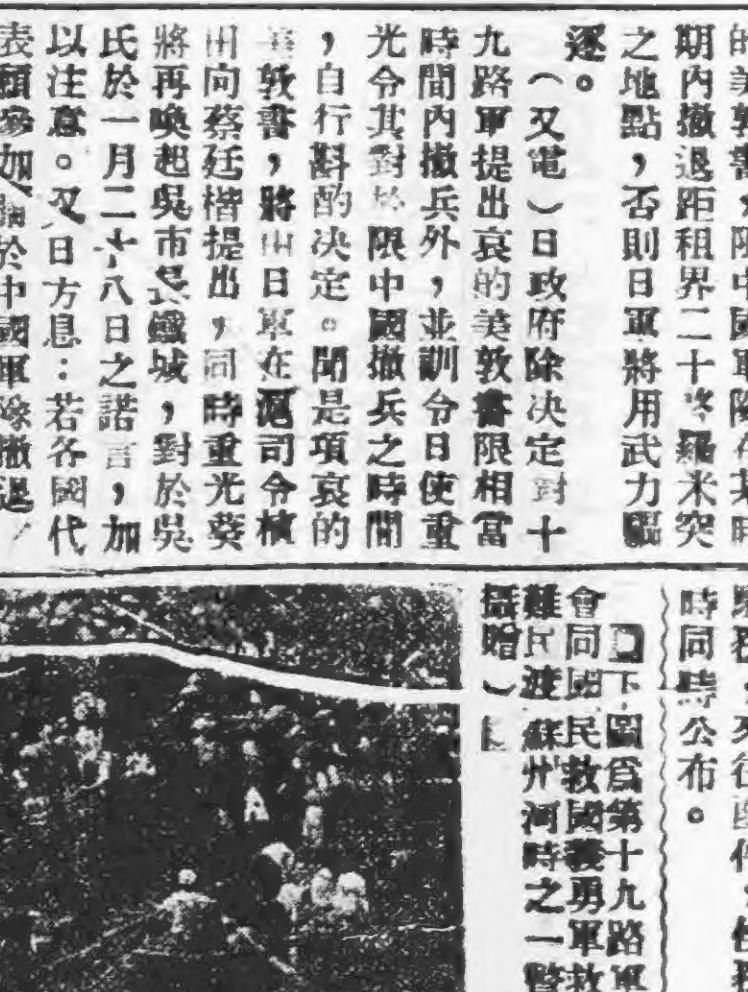 期內撤退距租界二十啓羅米突
之地點，否則日軍將用武力驅
逐。
（又電）日政府除決定對十
九路軍提出哀的美敦書限相當
時間內撤兵外，並訓令日使重
光令其對於限中國撤兵之時間
，自行斟酌決定。聞是項哀的
美敦書，將由日軍在滬司令植
田向蔡廷楷提出，同時重光葵
將再喚起吳市長鐵城，對於吳
氏於一月二十八日之諾言，加
以注意。又日方息：若各國代
表願參加關於中國軍隊撤退
時同時公布。
下圖爲第十九路軍
會同國民救國義勇軍救
難民渡蘇州河時之一瞥
攝贈）